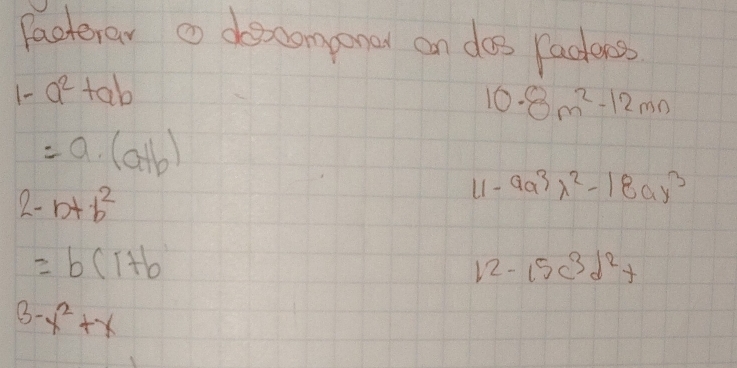 Factorar o descomponer en dos factores
1- a² + ab
= a. (a+b)
2- b + b²
= b (1+b
3- x² + x
10. 8m² - 12mn
11- 9a³x² - 18ax³
12 - 15c³d² +